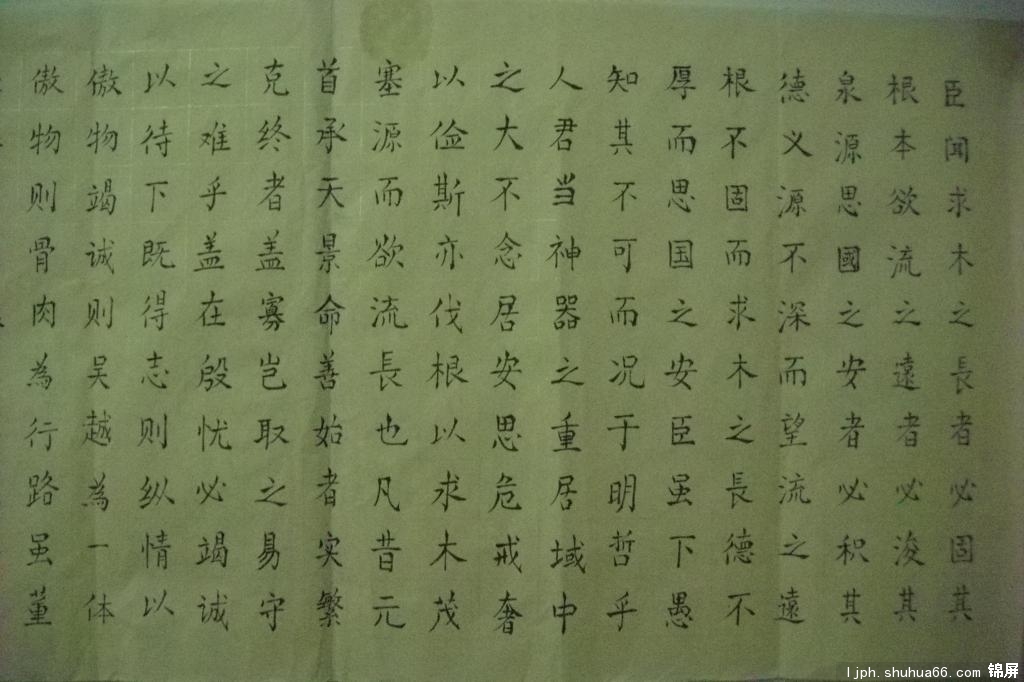 臣闻求木之長者必固其
根本欲流之遠者必浚其
泉源思國之安者必积其
德义源不深而望流之遠
根不固而求木之長德不
厚而思国之安臣虽下愚
知其不可而况于明哲乎
人君当神器之重居域中
之大不念居安思危戒奢
以俭斯亦伐根以求木茂
塞源而欲流長也凡昔元
首承天景命善始者实繁
克终者盖寡岂取之易守
之难乎盖在殷忧必竭诚
以待下既得志则纵情以
傲物竭诚则吴越為一体
傲物则骨肉為行路虽董
ljph.shuhua66.com 锦屏